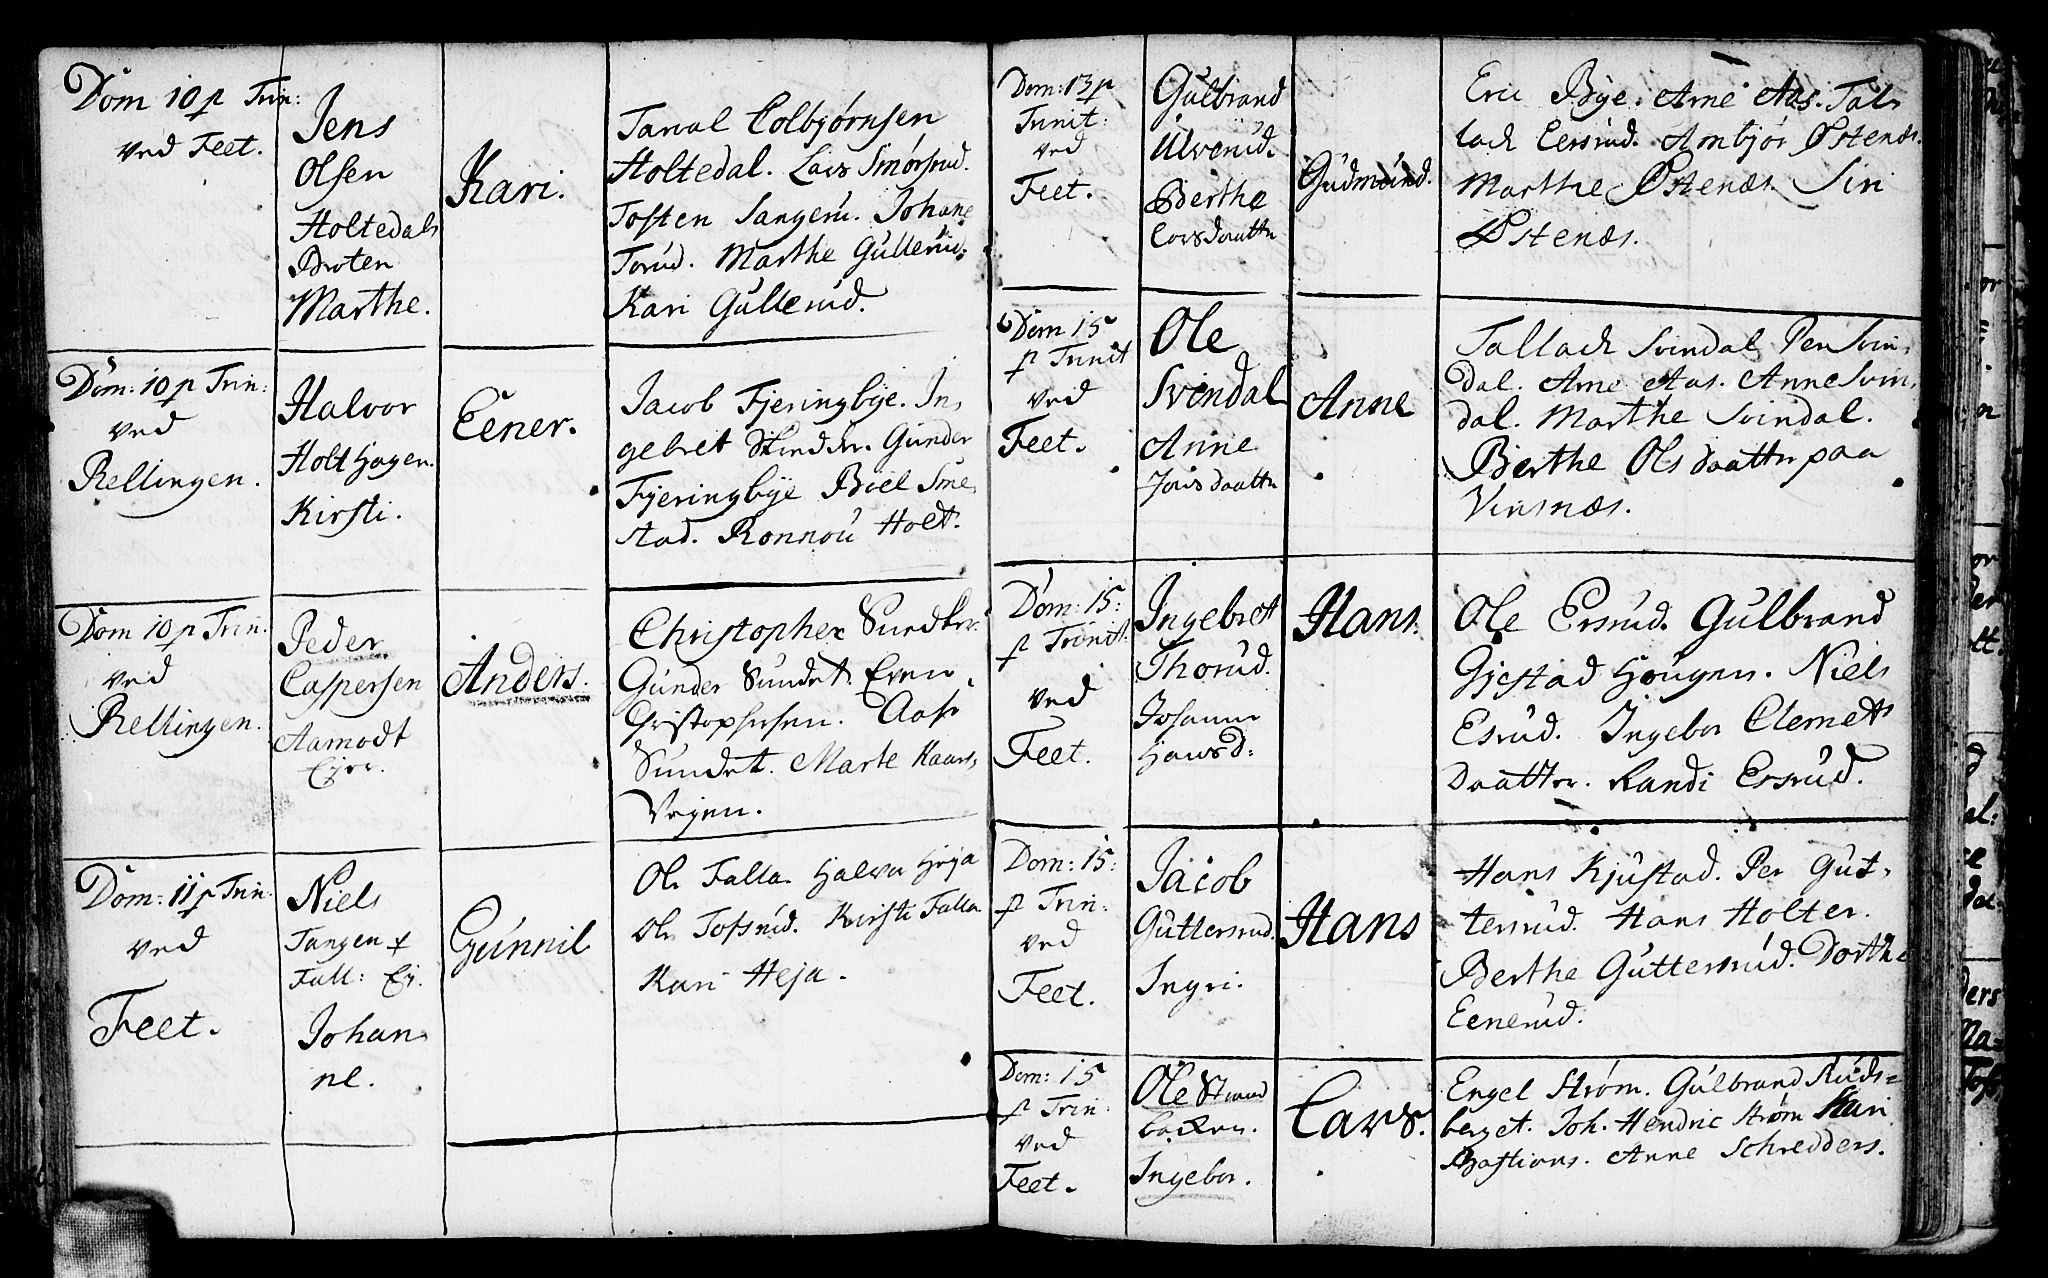 Dom 10 p Trin:
ved Feet.
Jens
Olsen
Holtedals
Broten
Marthe.
Kari.
Taral Colbjørnsen
Holtedal. Lars Smørsrud.
Tosten Tangerú. Johane
Torúd. Marthe Gúllerúd.
Kari Gúllerúd.
Dom: 10 p Trin:
ved
Rellingen.
Halvor
Holt Hagen.
Kirsti.
Eener.
Jacob Fjeringbÿe. In,
gebret Skinder. Gúnder
Fjeringbÿe Biel Sme,
stad. Ronnoú Holt.
Dom 10 p Trin.
ved
Rellingen.
Peder
Caspersen
Aamodt
Ejer.
Anders.
Christopher
Gúnder Súndet. Even
Christophersen. Aase
Súndet. Marte Haars,
Vejen.
Dom: 11 p Trin:
ved
Feet.
Niels
Tangen
Fall: Ej.
Johan,
ne.
Gúnnil
Ole Falla. Halvor Heja
Ole Tofsrúd. Kirsti Falla.
Kari Heja.
Dom: 13 p
Trinit:
ved
Feet.
Gúlbrand
Úlverúd.
Berthe
Larsdaattr
Gúdmúnd.
Eric Bÿe. Arne Aas. Tal,
lack Eersrúd. Ambjør Østenæs.
Marthe Østenæs. Siri
Østenæs.
Dom 15
p Trinit
ved
Feet.
Ole
Svindal
Anne
daattr
Anne
Tallack Svindal Per Svin,
dal. Arne Aas. Anne Svin,
dal. Marthe Svindal.
Berthe Olsdaattr paa
Vinsnæs.
Dom: 15:
p Trinit.
ved
Feet.
Ingebret
Thorúd.
Johanne
Hansd:
Hans.
Ole Ersrúd. Gúlbrand
Gjestad Hougen. Niels
Esrúd. Ingebor Clemets
Daatter. Randi Ersrúd.
Dom: 15:
p Trin:
ved
Feet.
Jacob
Gúttersrud.
Ingri.
Hans
Hans Kjústad. Per Gút,
tersrúd. Hans Holter.
Berthe Gúttersrúd. Dorthe
Eenerúd.
Dom: 15
p Trin:
ved
Feet.
Ole Strand
backen.
Ingebor.
Lars.
Engel Strøm. Gúlbrand Rúds=
berget. Joh. Hendric Strøm Kari
Bastians. Anne Schredders.